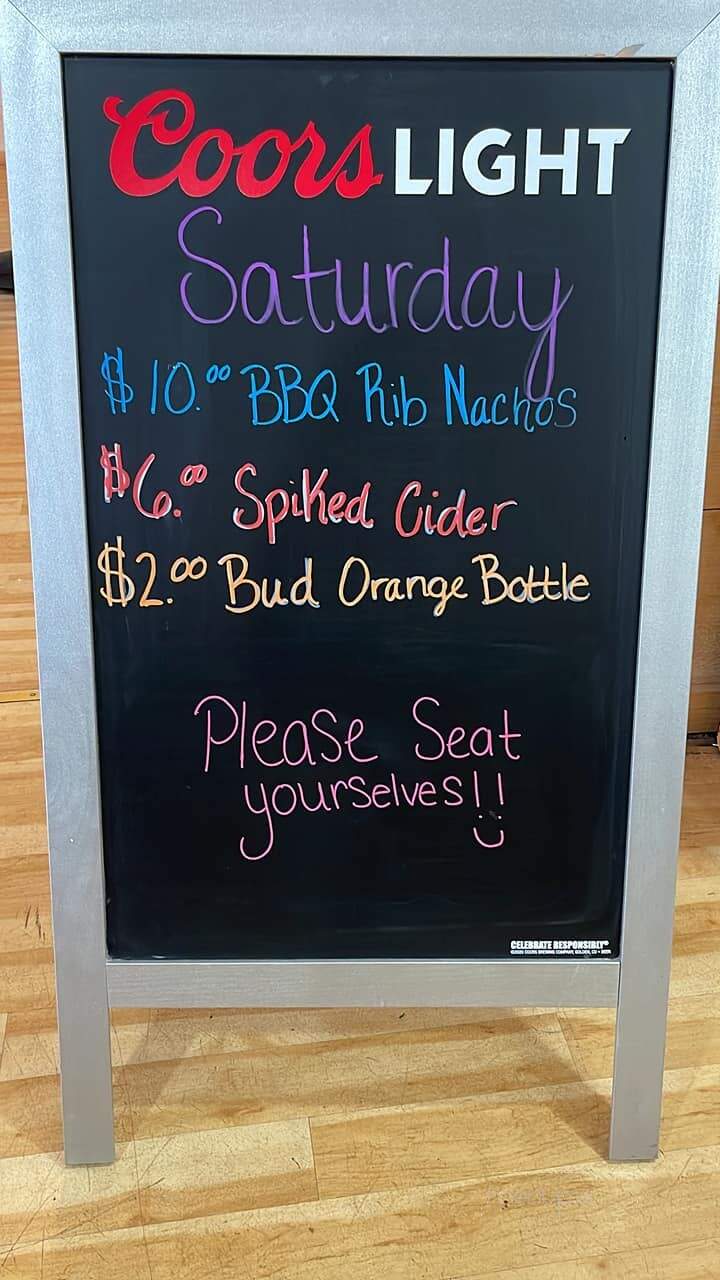 Coors LIGHT
Saturday
$10.00 BBQ Rib Nachos
$6.00 Spiked Cider
$2.00 Bud Orange Bottle
Please Seat
yourselves!!
CELEBRATE RESPONSIBLY®